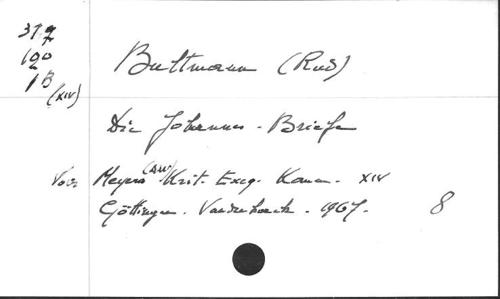 312
190
1B
(XIV)
Bultmann (Rud)
Die Johannes-Briefe
Meyers Krit. Exeg. Komm. XIV
Göttingen. Vandenhoeck. 1967.
8